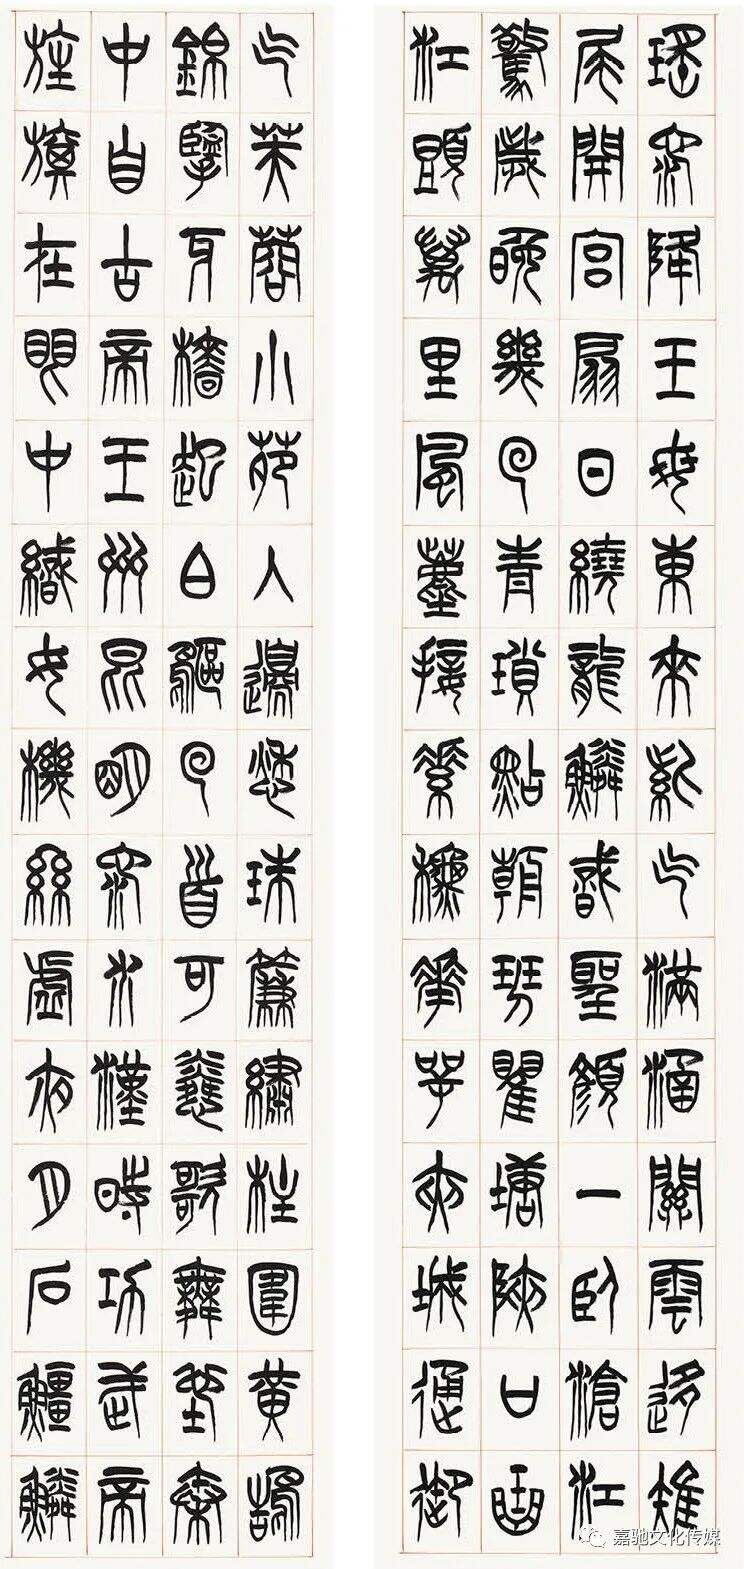 瑤池降王母東來紫气滿涵關雲移雉
尾開宮扇日繞龍鱗識聖顏一臥滄江
驚歲晚幾回青瑣點朝班瞿塘峽口曲
江頭萬里風煙接素秋花萼夾城通御
气芙蓉小苑入邊愁珠簾繡柱圍黃鵠
錦纜牙檣起白鷗回首可憐歌舞地秦
中自古帝王州昆明池水漢時功武帝
旌旗在眼中織女機絲虛夜月石鯨鱗
嘉驰文化传媒